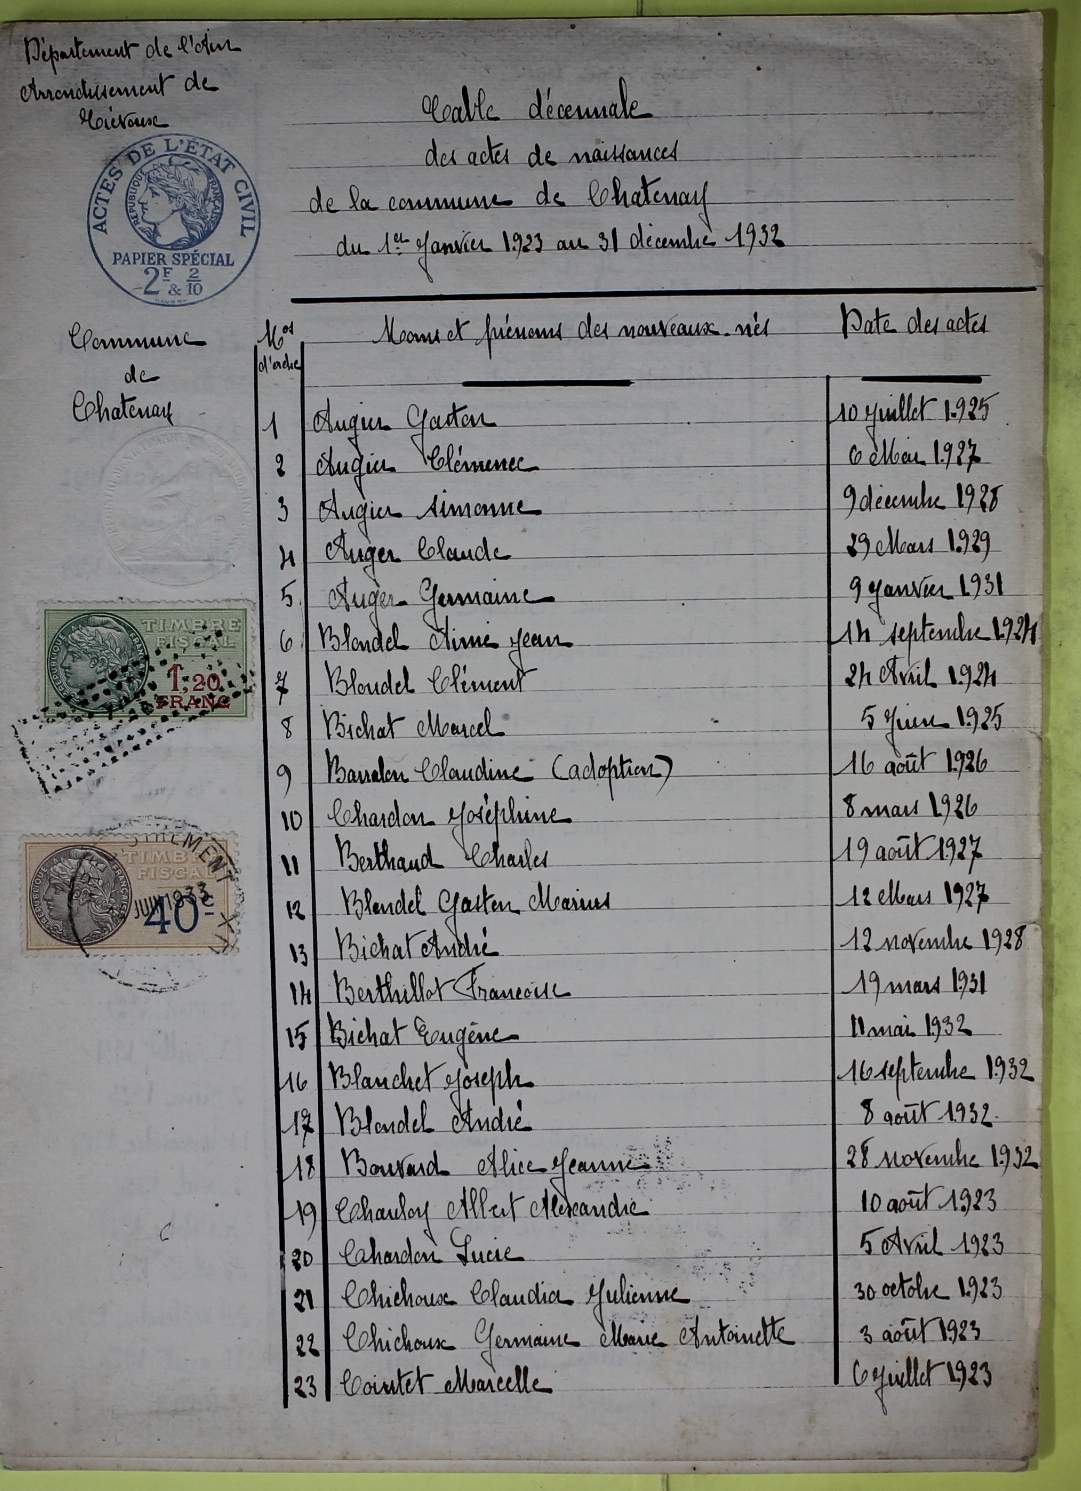 Département de l'Ain
Arrondissement de
Trévoux
ACTES DE L'ÉTAT CIVIL
RÉPUBLIQUE FRANÇAISE
PAPIER SPÉCIAL
2F & 2/10
Table décennale
des actes de naissances
de la commune de Chatenay
du 1er Janvier 1923 au 31 décembre 1932
Commune
de
Chatenay
TIMBRE
FISCAL
RÉPUBLIQUE FRANÇAISE
1,20
FRANC
TIMBRE
FISCAL
RÉPUBLIQUE FRANÇAISE
JUIN 1933
40c
Nos d'ordre Noms et prénoms des nouveaux-nés Date des actes
1 Augier Gaston 10 Juillet 1925
2 Augier Clémence 6 Mai 1927
3 Augier Simonne 9 décembre 1928
4 Auger Claude 29 Mars 1929
5 Auger Germaine 9 Janvier 1931
6 Blondel Aimé Jean 14 septembre 1924
7 Blondel Clément 24 Avril 1924
8 Bichat Marcel 5 Juin 1925
9 Barralon Claudine (adoption) 16 août 1926
10 Chardon Joséphine 8 mars 1926
11 Berthaud Charles 19 août 1927
12 Blondel Gaston Marius 12 Mars 1927
13 Bichat André 12 novembre 1928
14 Berthillot Francoise 19 mars 1931
15 Bichat Eugène 11 mai 1932
16 Blanchet Joseph 16 septembre 1932
17 Blondel André 8 août 1932
18 Bouvard Alice Jeanne 28 novembre 1932
19 Charloy Albert Alexandre 10 août 1923
20 Chardon Lucie 5 Avril 1923
21 Chichoux Claudia Julienne 30 octobre 1923
22 Chichoux Germaine Marie Antoinette 3 août 1923
23 Cointet Marcelle 6 Juillet 1923